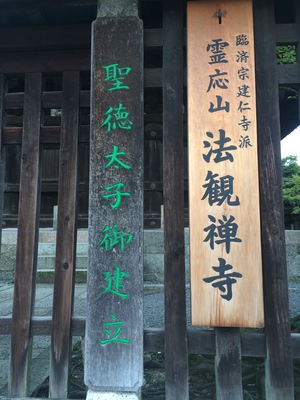 臨済宗建仁寺派
霊応山 法観禅寺
聖徳太子御建立